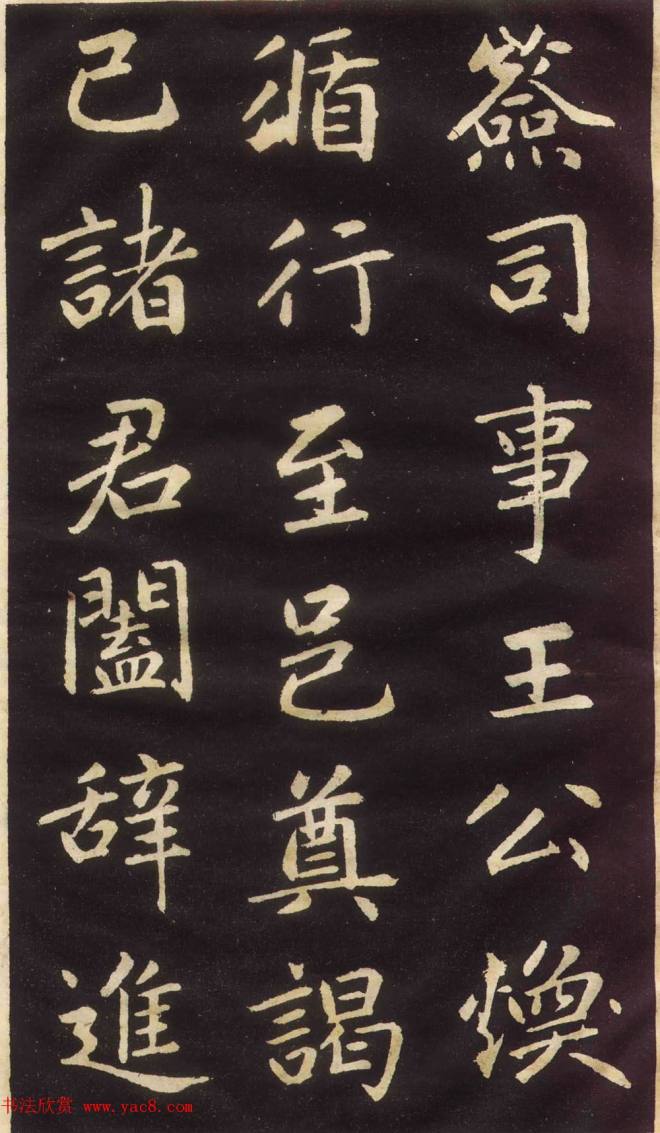 蕟司事王公煥
循行至邑奠謁
已諸君闔辞進
书法欣赏 www.yac8.com